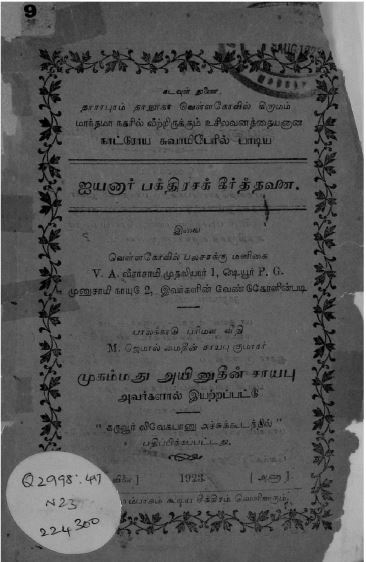 9
கடவுள் துணை.
தாராபுரம் தாலூகா வெள்ளகோவில் கிருமம்
மாந்தமா நகரில் வீற்றிருக்கும் உசிலவனத்தையனான
காட்ரோய சுவாமிபேரில் பாடிய
ஐயனார் பக்திரசக் கீர்த்தனை.
இவை
வெள்ளகோவில் பலசரக்கு மளிகை
V. A. வீராசாமி முதலியார் 1, P. G.
முனுசாமி நாயுடு 2, இவர்களின் வேண்டுகோளின்படி
பாலக்காடு பரிமள வீதி
M. ஜெமால் மைதீன் சாயபு குமாரர்
முகம்மது அயினுதீன் சாயபு
அவர்களால் இயற்றப்பட்டு
" கருவூர் விவேகபானு அச்சுக்கூடத்தில் "
பதிப்பிக்கப்பட்டது.
1923 [ அணா ]
கூடிய சித்திரம் வெளிவரும்.
Q2998:417
N23
224300